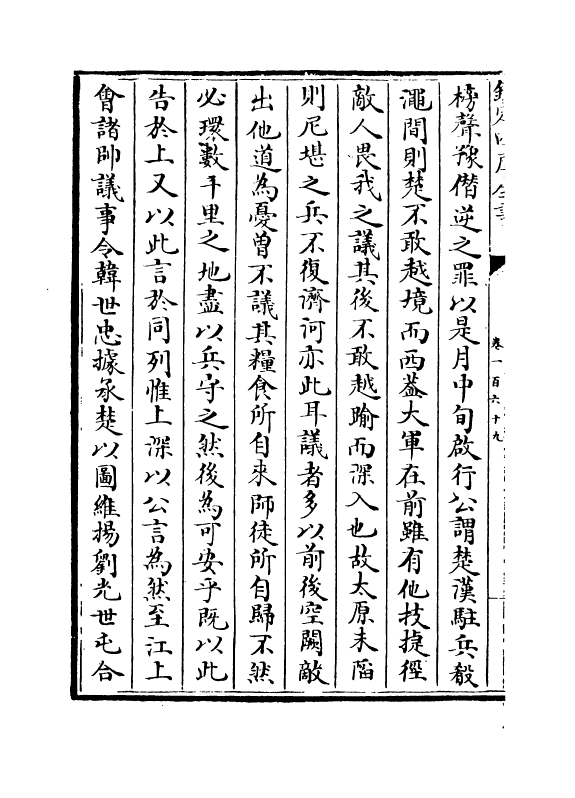 欽定四庫全書
卷一百六十九
榜聲豫僭逆之罪以是月中旬啟行公謂楚漢駐兵殽
澠間則楚不敢越境而西葢大軍在前雖有他技捷徑
敵人畏我之議其後不敢越踰而深入也故太原未䧟
則尼堪之兵不復濟河亦此耳議者多以前後空闕敵
出他道為憂曾不議其糧食所自來師徒所自歸不然
必環數千里之地盡以兵守之然後為可安乎既以此
告於上又以此言於同列惟上深以公言為然至江上
㑹諸帥議事令韓世忠據承楚以圖維揚劉光世屯合